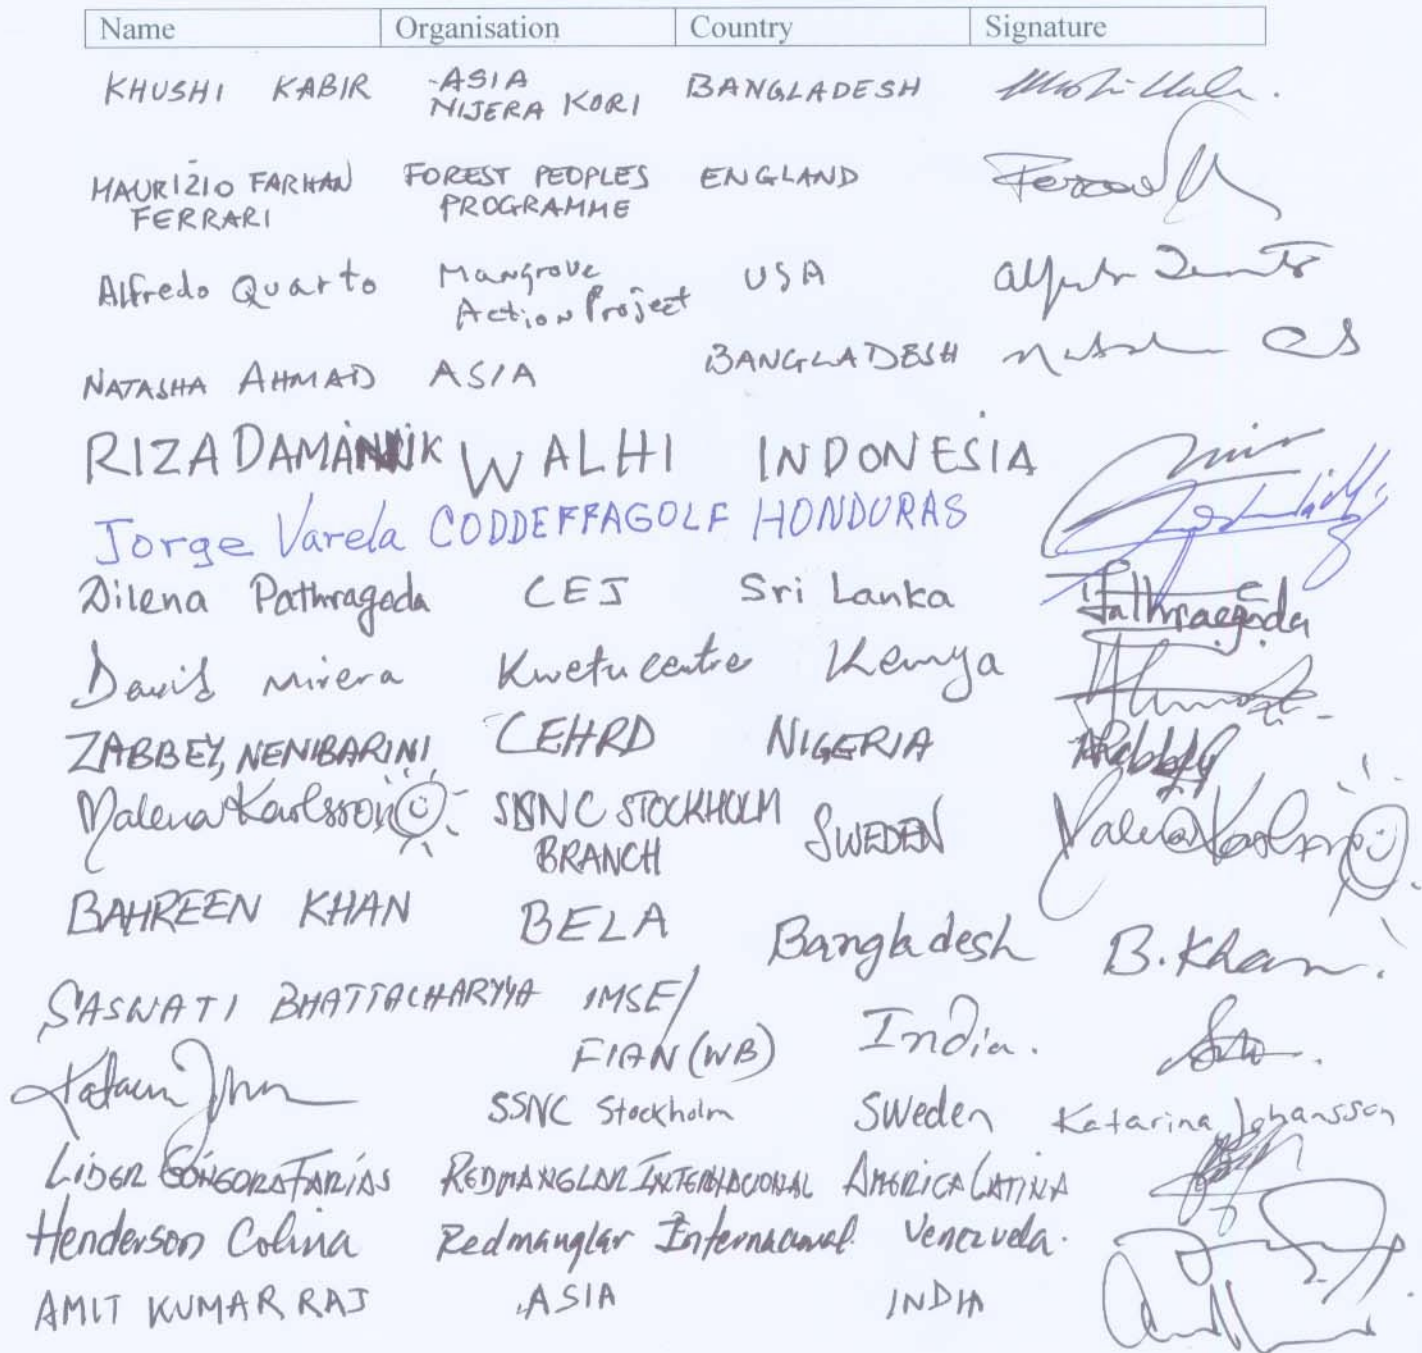 Name Organisation Country Signature
KHUSHI KABIR -ASIA BANGLADESH
NIJERA KORI
MAURIZIO FARHAN FOREST PEOPLES ENGLAND
FERRARI PROGRAMME
Alfredo Quarto Mangrove USA
Action Project
NATASHA AHMAD ASIA BANGLADESH
RIZA DAMANIK WALHI INDONESIA
Jorge Varela CODDEFFAGOLF HONDURAS
Dilena Pathragoda CEJ Sri Lanka Pathragoda
David Mirera Kwetu centre Kenya
ZABBEY, NENIBARINI CEHRD NIGERIA
Malena Karlsson SSNC STOCKHOLM SWEDEN Malena Karlsson
BRANCH
BAHREEN KHAN BELA Bangladesh B. Khan.
SASWATI BHATTACHARYYA IMSE/ India.
FIAN (WB)
SSNC Stockholm Sweden Katarina Johansson
LIDER GÓNGORA FARÍAS REDMANGLAR INTERNACIONAL AMERICA LATINA
Henderson Colina Redmanglar Internacional Venezuela.
AMIT KUMAR RAJ ASIA INDIA